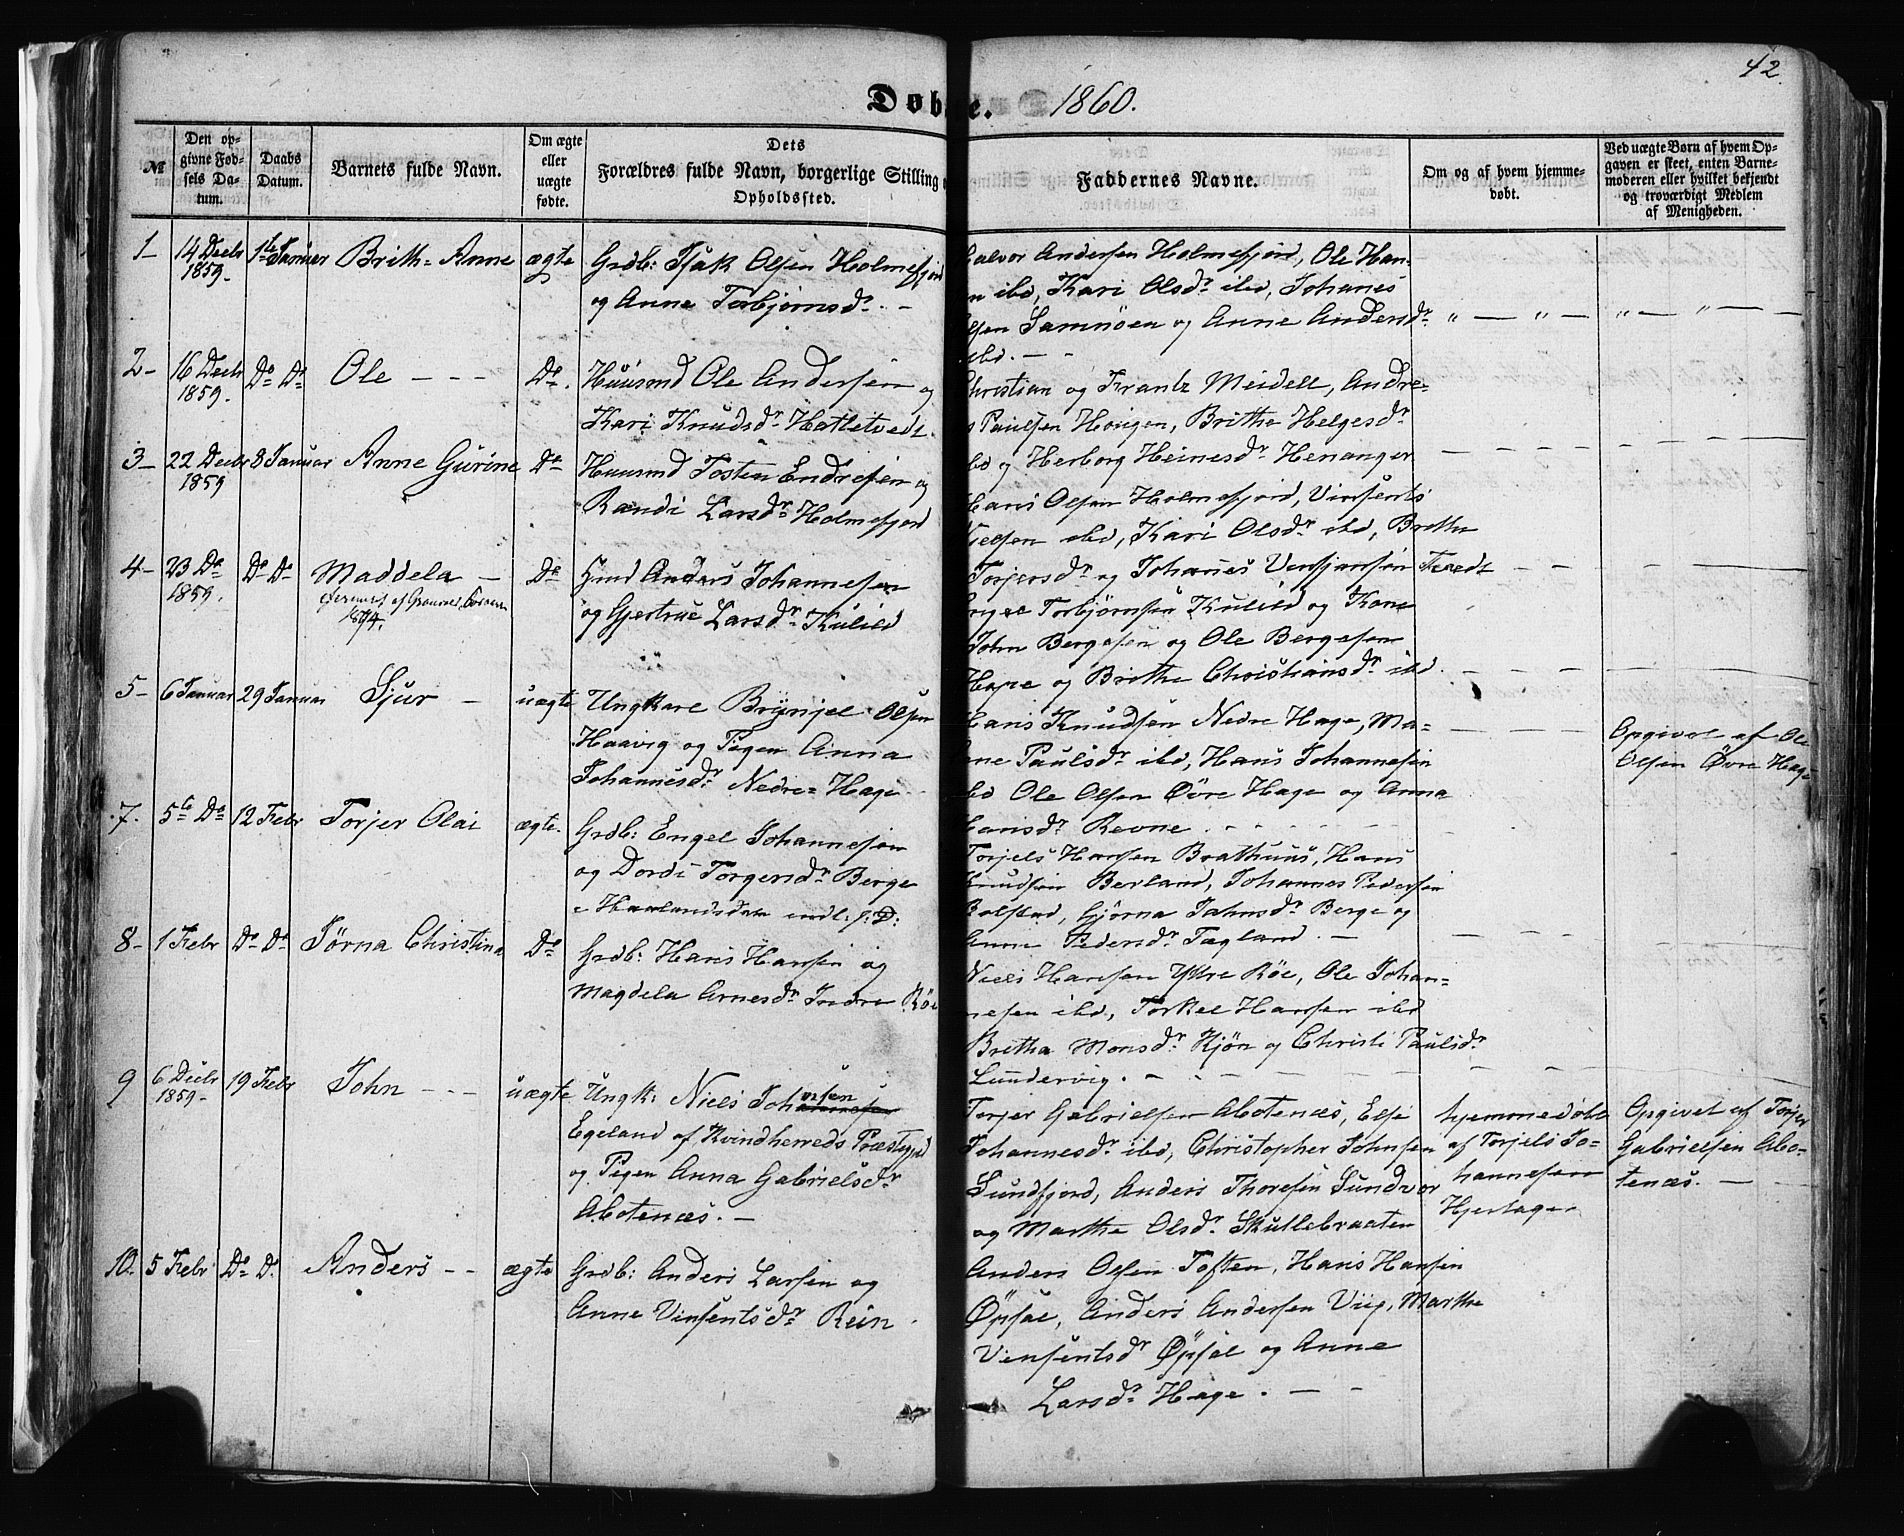 42.
Døbte. 1860.
№
Den op-
givne Fød-
sels Da-
tum.
Daabs
Datum.
Barnets fulde Navn.
Om ægte
eller
uægte
fødte.
Dets
Forældres fulde Navn, borgerlige Stilling
Opholdssted.
Faddernes Navne.
Om og af hvem hjemme-
døbt.
Ved uægte Børn af hvem Op-
gaven er skeet, enten Barne-
moderen eller hvilket bekjendt
og troværdigt Medlem
af Menigheden.
1-
14 Decbr
1859.
1ste Januer
Brith= Anne
ægte
Grdb: Isak Olsen Holmefjord
og Anne Torbjørnsdr. -
Andersen Holmefjord, Ole Han-
ibd, Kari Olsdr ibd, Johanes
Samnøen og Anne Andersdr
ibd. - -
2-
16 Decbr
1859.
Do Do
Ole - - -
Do.
Huusmd Ole Andersen og
Kari Knudsdr Hatletvedt
Christian og Frantz Meidell, Andre-
Paulsen Hougen, Brithe Helgesdr
og Herborg Heinesdr Henanger
3-
22 Decbr
1859
8 Januar
Anne Gurine
Do
Huusmd Tosten Endresen og
Randi Larsdr Holmefjord
Hans Olsen Holmefjord, Vinsents
ibd, Kari Olsdr ibd, Brithe
Torjersdr og Johanes
4-
23 Do
1859.
Do Do
Maddela -
1874.
Do
Hmd Anders Johannesen
og Gjertrue Larsdr Kulild
Torbjørnsen Kulild og Kone
John Bergesen og Ole Bergesen
Hage og Brithe Christiansdr ibd.
5-
6 Januar
29 Januar
Sjur -
uægte
Ungkarl Brynjel Olsen
Haavig og Pigen Anna
Johannesdr Nedre= Hage
Hans Knudsen Nedre Hage, Ma-
Paulsdr ibd, Hans Johannesen
Ole Olsen Øvre Hage og Anna
Hansdr Revne. - - - -
Opgivet af Ole
Olsen Øvre Hage
7.
5te Do
12 Febr
Torjer Olai
ægte.
Grdb: Engel Johannesen
og Dordi Torgersdr Berge
Torjels Hansen Brathuus, Hans
Knudsen Berland, Johannes Pedersen
Bolstad, Gjørna Johnsdr Berge og
Anne Pedersdr Tægland. -
8-
1 Febr
Do Do
Jørna Christina
Do
Grdb: Hans Hansen og
Magdela Arnesdr Indre Røe
Niels Hansen Yttre Røe, Ole Johan-
nesen ibd, Torkel Hansen ibd
Bretha Monsdr Kjøn og Christi Paulsdr
Lundervig. - - -
9
6 Decbr
1859-
19 Febr
John - - -
uægte
Ungk: Niels Johnsen
Egeland af Kvindherreds Præstegjd
og Pigen Anna Gabrielsdr
Abotenæs. -
Torjer Gabrielsen Abotenæs, Else
Johannesdr ibd, Christopher Johnsen
Sundfjord, Anders Thoresen Sundvor
og Marthe Olsdr Skutlebraaten
hjemmedøbt
af Torjels Jo-
hannesen
Hjertager
Opgivet af Torjer
Gabrielsen Abo-
tenæs. -
10.
5 Febr
Do Do.
Anders - -
ægte
Grdb: Anders Larsen og
Anne Vinsentsdr Rein.
Anders Olsen Toften, Hans Hansen
Øpsal, Anders Andersen Viig, Marthe
Vensentsdr Øpsal og Anne
Larsdr Hage. - -